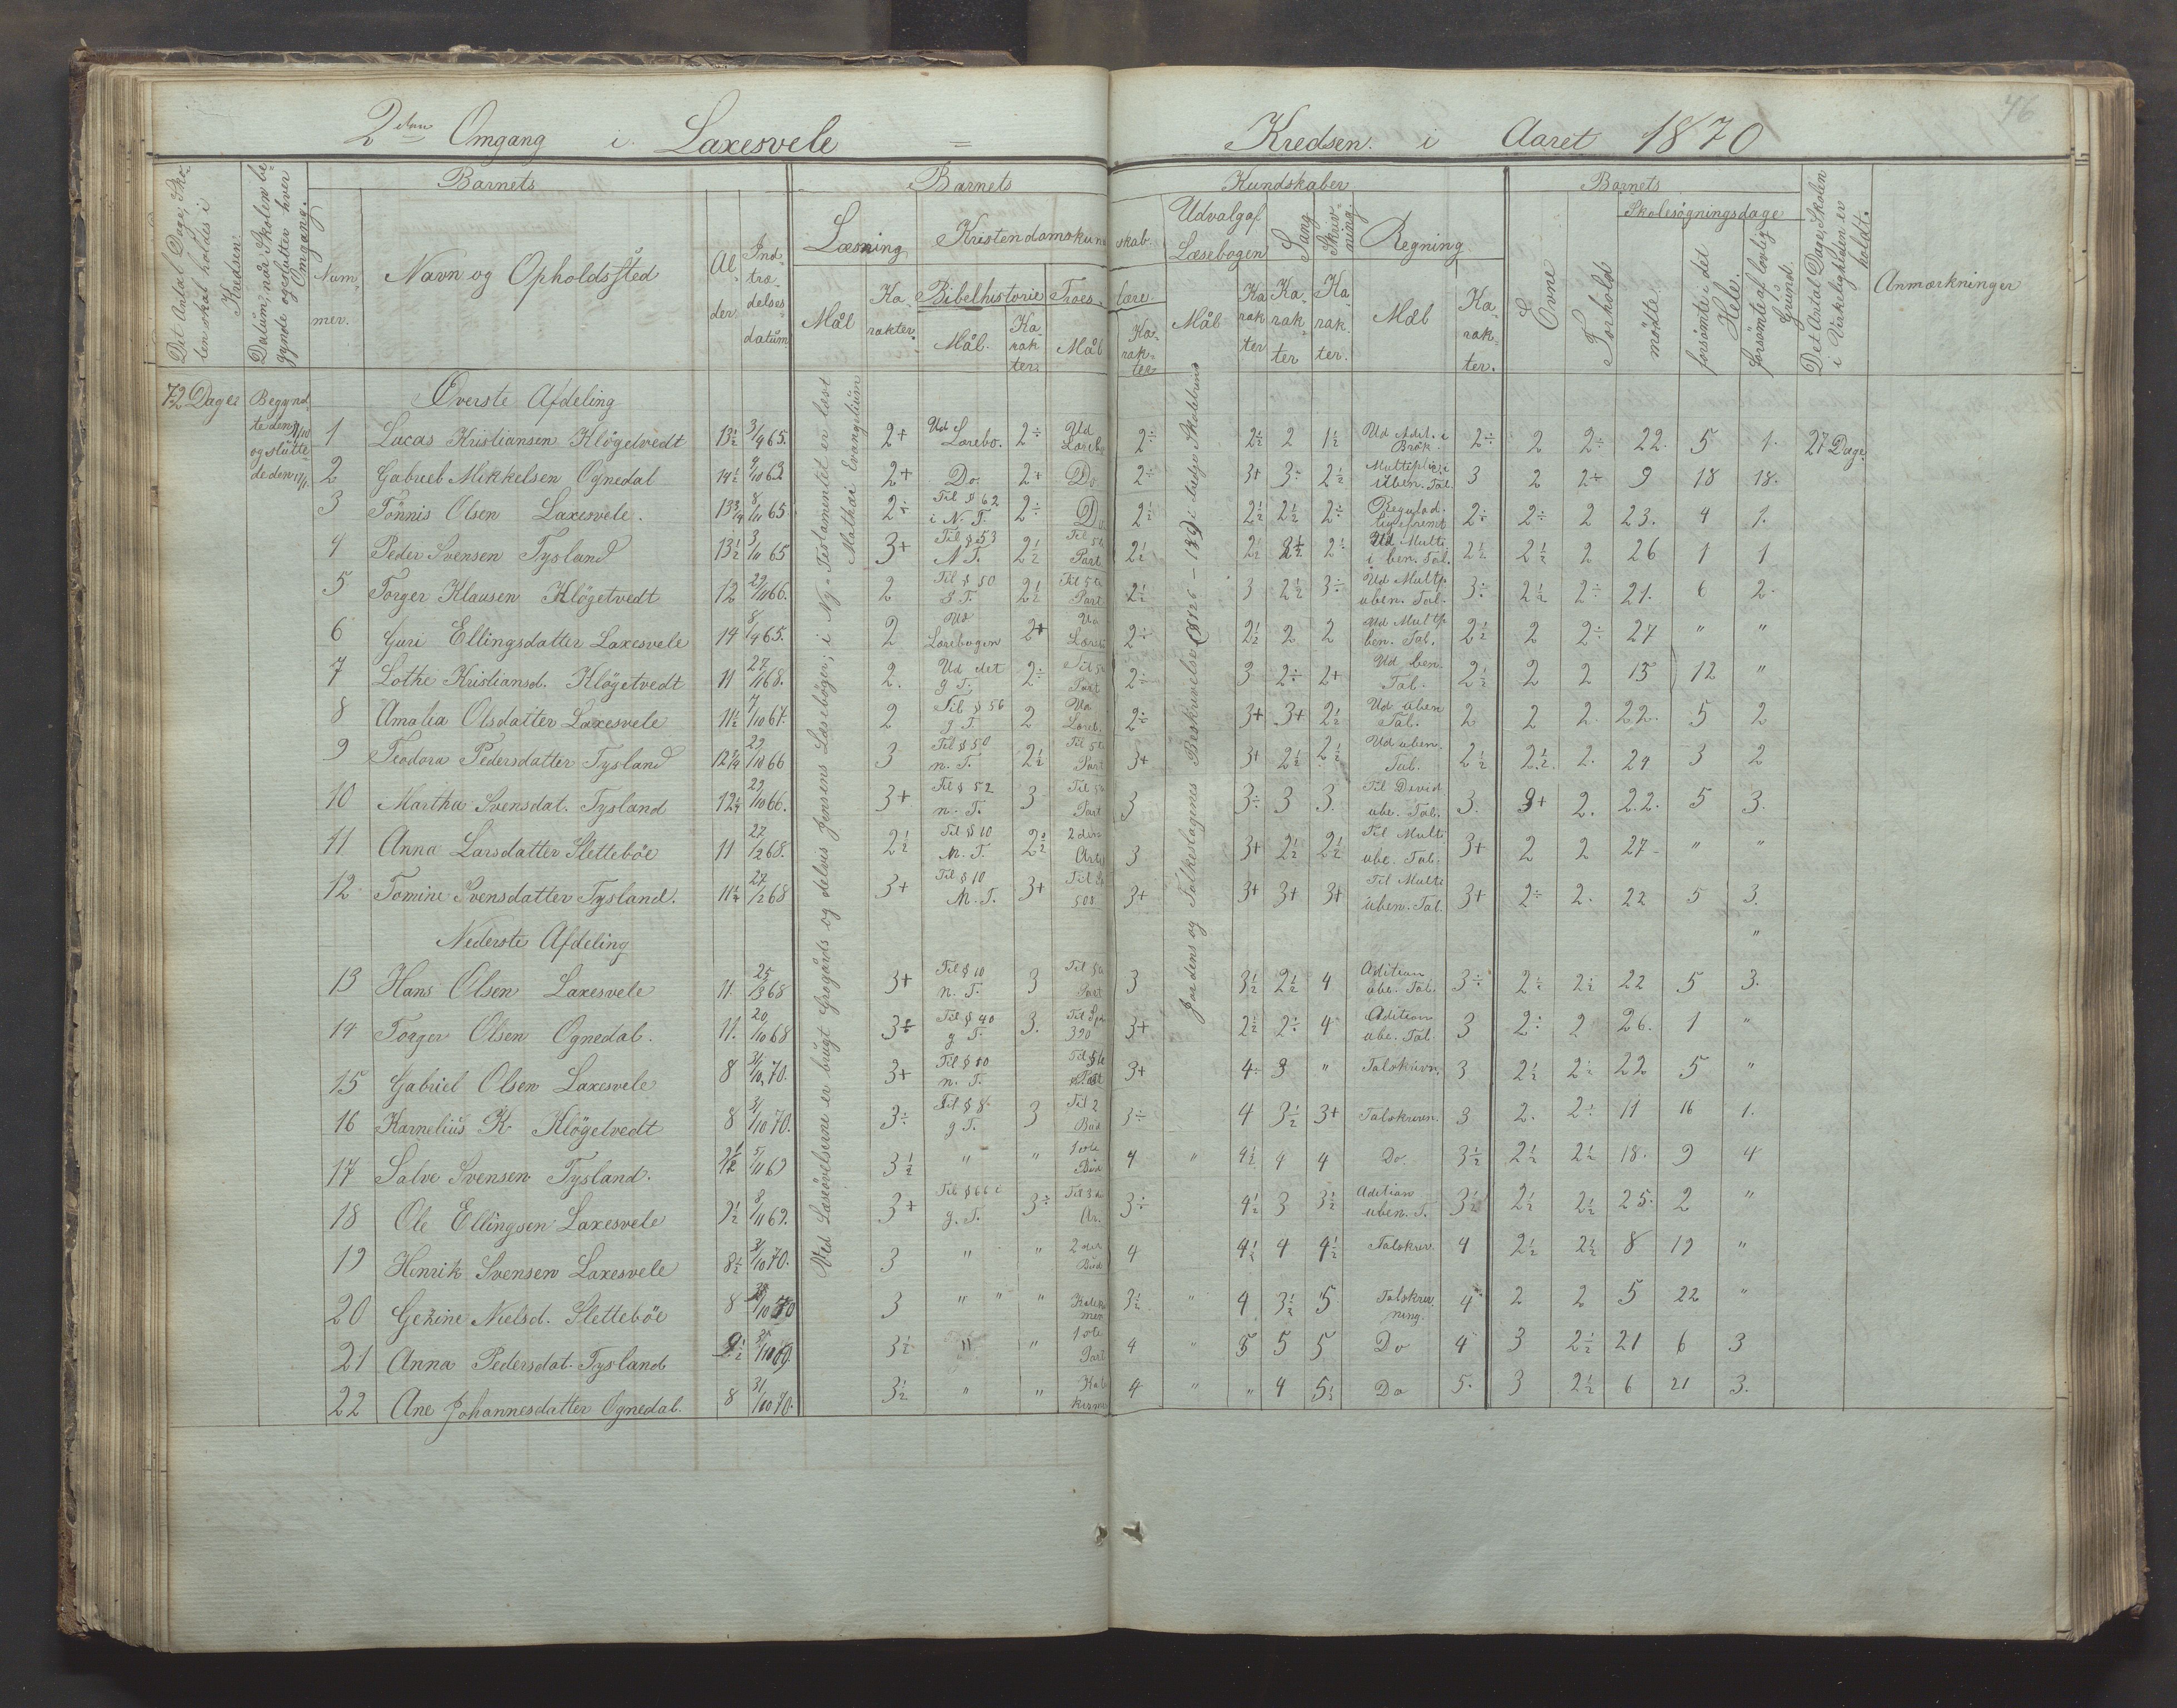 46
2den Omgang i Laxesvele = Kredsen i Aaret 1870
Det Antal Dage, Skolen skal holdes i Kredsen.
Datum, når Skolen begynde og slutter hver Omgang.
Barnets
Nummer.
Navn og Opholdssted
Alder.
Indtrædelsesdatum
Barnets Kundskaber
Læsning
Mål
Karakter.
Kristendomskundskab.
Bibelhistorie
Mål.
Karakter.
Troeslære.
Mål
Karakter
Udvalg af Læsebogen
Mål
Karakter
Sang
Karakter
Skrivning.
Karakter.
Regning
Mål
Karakter.
Barnets
Evne
Forhold
Skolesøgningsdage
mødte.
forsømte i det Hele.
forsømte af lovlig Grund.
Det Antal Dage, Skolen i Virkeligheden er holdt.
Anmærkninger
72 Dage
Begyndte den og sluttede den
Øverste Afdeling
Ved Læseøvelserne er brugt Grogårds og delvis Jensens Læsebøger; i Ny-Testamentet er læst Mathæi Evangelium
Jordens og Folkeslagenes Beskrivelse i tredje Skoletrin
1 Lucas Kristiansen Klögetvedt 13½ 3/9 65. 2+ Ud Lærebo. 2÷ Ud Lærebo 2÷ 2½ 2 1½ Ud Adit. i Brök 2÷ 2 2÷ 22. 5 1. 27 Dage.
2 Gabriel Mikkelsen Ognedal 14½ 9/10 63 2+ Do. 2+ Do 2÷ 3+ 3÷ 2½ Multiplic. i uben. Tal. 3 2 2+ 9 18 18.
3 Tönnis Olsen Laxesvele. 13¾ 8/11 65 2÷ Til § 62 i N. T. 2÷ Do 2½ 2½ 2½ 2÷ 2÷ 2÷ 2 23. 4 1.
4 Peder Svensen Tysland 13½ 3/11 65 3+ Til § 53 N T. 2½ Til 5te Part. 2½ 2½ 2÷ Ud Multi i ben. Tal. 2½ 2½ 2 26 1 1
5 Torger Klausen Klögetvedt 12 29/11 66. 2 Til § 50 g T. 2½ Til 5te Part 2½ 3 2½ 3÷ Ud Multp. uben. Tal. 3÷ 2½ 2÷ 21. 6 2.
6 Guri Ellingsdatter Laxesvele 14 8/9 65. 2 Ud Lærebogen 2+ Ud Læreb 2÷ 2½ 2 2 Ud Multp. ben. Tal. 2½ 2 2÷ 27 " "
7 Lothe Kristiansd. Klögetvedt 11 27/1 68. 2. Ud det g T. 2÷ Til 5te Part 2÷ 3 2÷ 2+ Ud ben. Tal. 2½ 2 2 15 12 "
8 Amalia Olsdatter Laxesvele 11½ 4/10 67. 2 Til § 56 g T. 2 Ud Læreb. 2÷ 3+ 3+ 2½ Ud uben Tal. 2 2 2. 22. 5 2
9 Teodora Pedersdatter Tysland 12¼ 29/10 66 3 Til § 50 n. T. 2½ Til 5te Part 3+ 3+ 2½ 2½ Ud uben. Tal. 2½ 2½. 2. 24 3 2
10 Martha Svensdat. Tysland 12¼ 29/10 66. 3+ Til § 52 n. T. 3 Til 5te Part 3 3÷ 3 3. Til Divid. ube. Tal. 3. 3+ 2. 22. 5 3.
11 Anna Larsdatter Slettebøe 11 27/2 68. 2½ Til § 10 N. T. 2½ 2den Art. 3 3+ 2½ 2½ Til Multi ube. Tal. 3+ 2 2 27 " "
12 Tomine Svensdatter Tysland. 11¼ 27/2 68 3+ Til § 10 N. T. 3+ Til Sp 500 3+ 3+ 3+ 3+ Til Multi uben. Tal. 3+ 2÷ 2. 22 5 3.
Nederste Afdeling "
13 Hans Olsen Laxesvele 11. 25/3 68 3+ Til § 10 n. T. 3 Til 5te Part 3 3½ 2½ 4 Adition ube. Tal. 3÷ 2÷ 2½ 22 5 3.
14 Torger Olsen Ognedal. 11. 20/10 68 3+ Til § 40 g T. 3. Til Sp. 390 3+ 2½ 2÷ 4 Adition ube. Tal 3 2÷ 2 26. 1 "
15 Gabriel Olsen Laxesvele 8 31/10 70. 3+ Til § 10 n. T. Til 5te Part 3+ 4÷ 3 " Talskrivn. 3 2½ 2½ 22 5 "
16 Karnelius K. Klögetvedt 8 31/10 70. 3÷ Til § 8 g T. 3 Til 2 Bud 3÷ 4 3½ 3+ Talskrivn. 3 2. 2÷ 11 16 1.
17 Salve Svensen Tysland. 5/11 69 3½ " " 1ste Bud 4 " 4½ 4 4 Do. 3½ 2½ 2½ 18. 9 4
18 Ole Ellingsen Laxesvele 9½ 8/11 69. 3+ Til § 66 i g. T. 3÷ Til 3die Ar. 3÷ 4½ 3 3½ Adition uben. T. 3½ 2½ 2½ 25. 2 "
19 Henrik Svensen Laxesvele 8½ 31/10 70. 3 " " 2det Bud 4 4½ 4 4½ Talskrev 4 2½ 2½ 8 19 "
20 Gekine Nielsd. Slettebøe 8 /10 70 3 " " " 3½ " 4 3½ 5 Talskrivning. 4 2 2 5 22 "
21 Anna Pedersdat. Tysland 9½ /10 69. 3½ " " 1ste Part 4 " 5 5 5 Do 4 3 2½ 21 6 3
22 Ane Johannesdatter Ognedal. 8 31/10 70. 3½ " " 4 " " 4 5½ Do 5. 3 2½ 6 21 3.